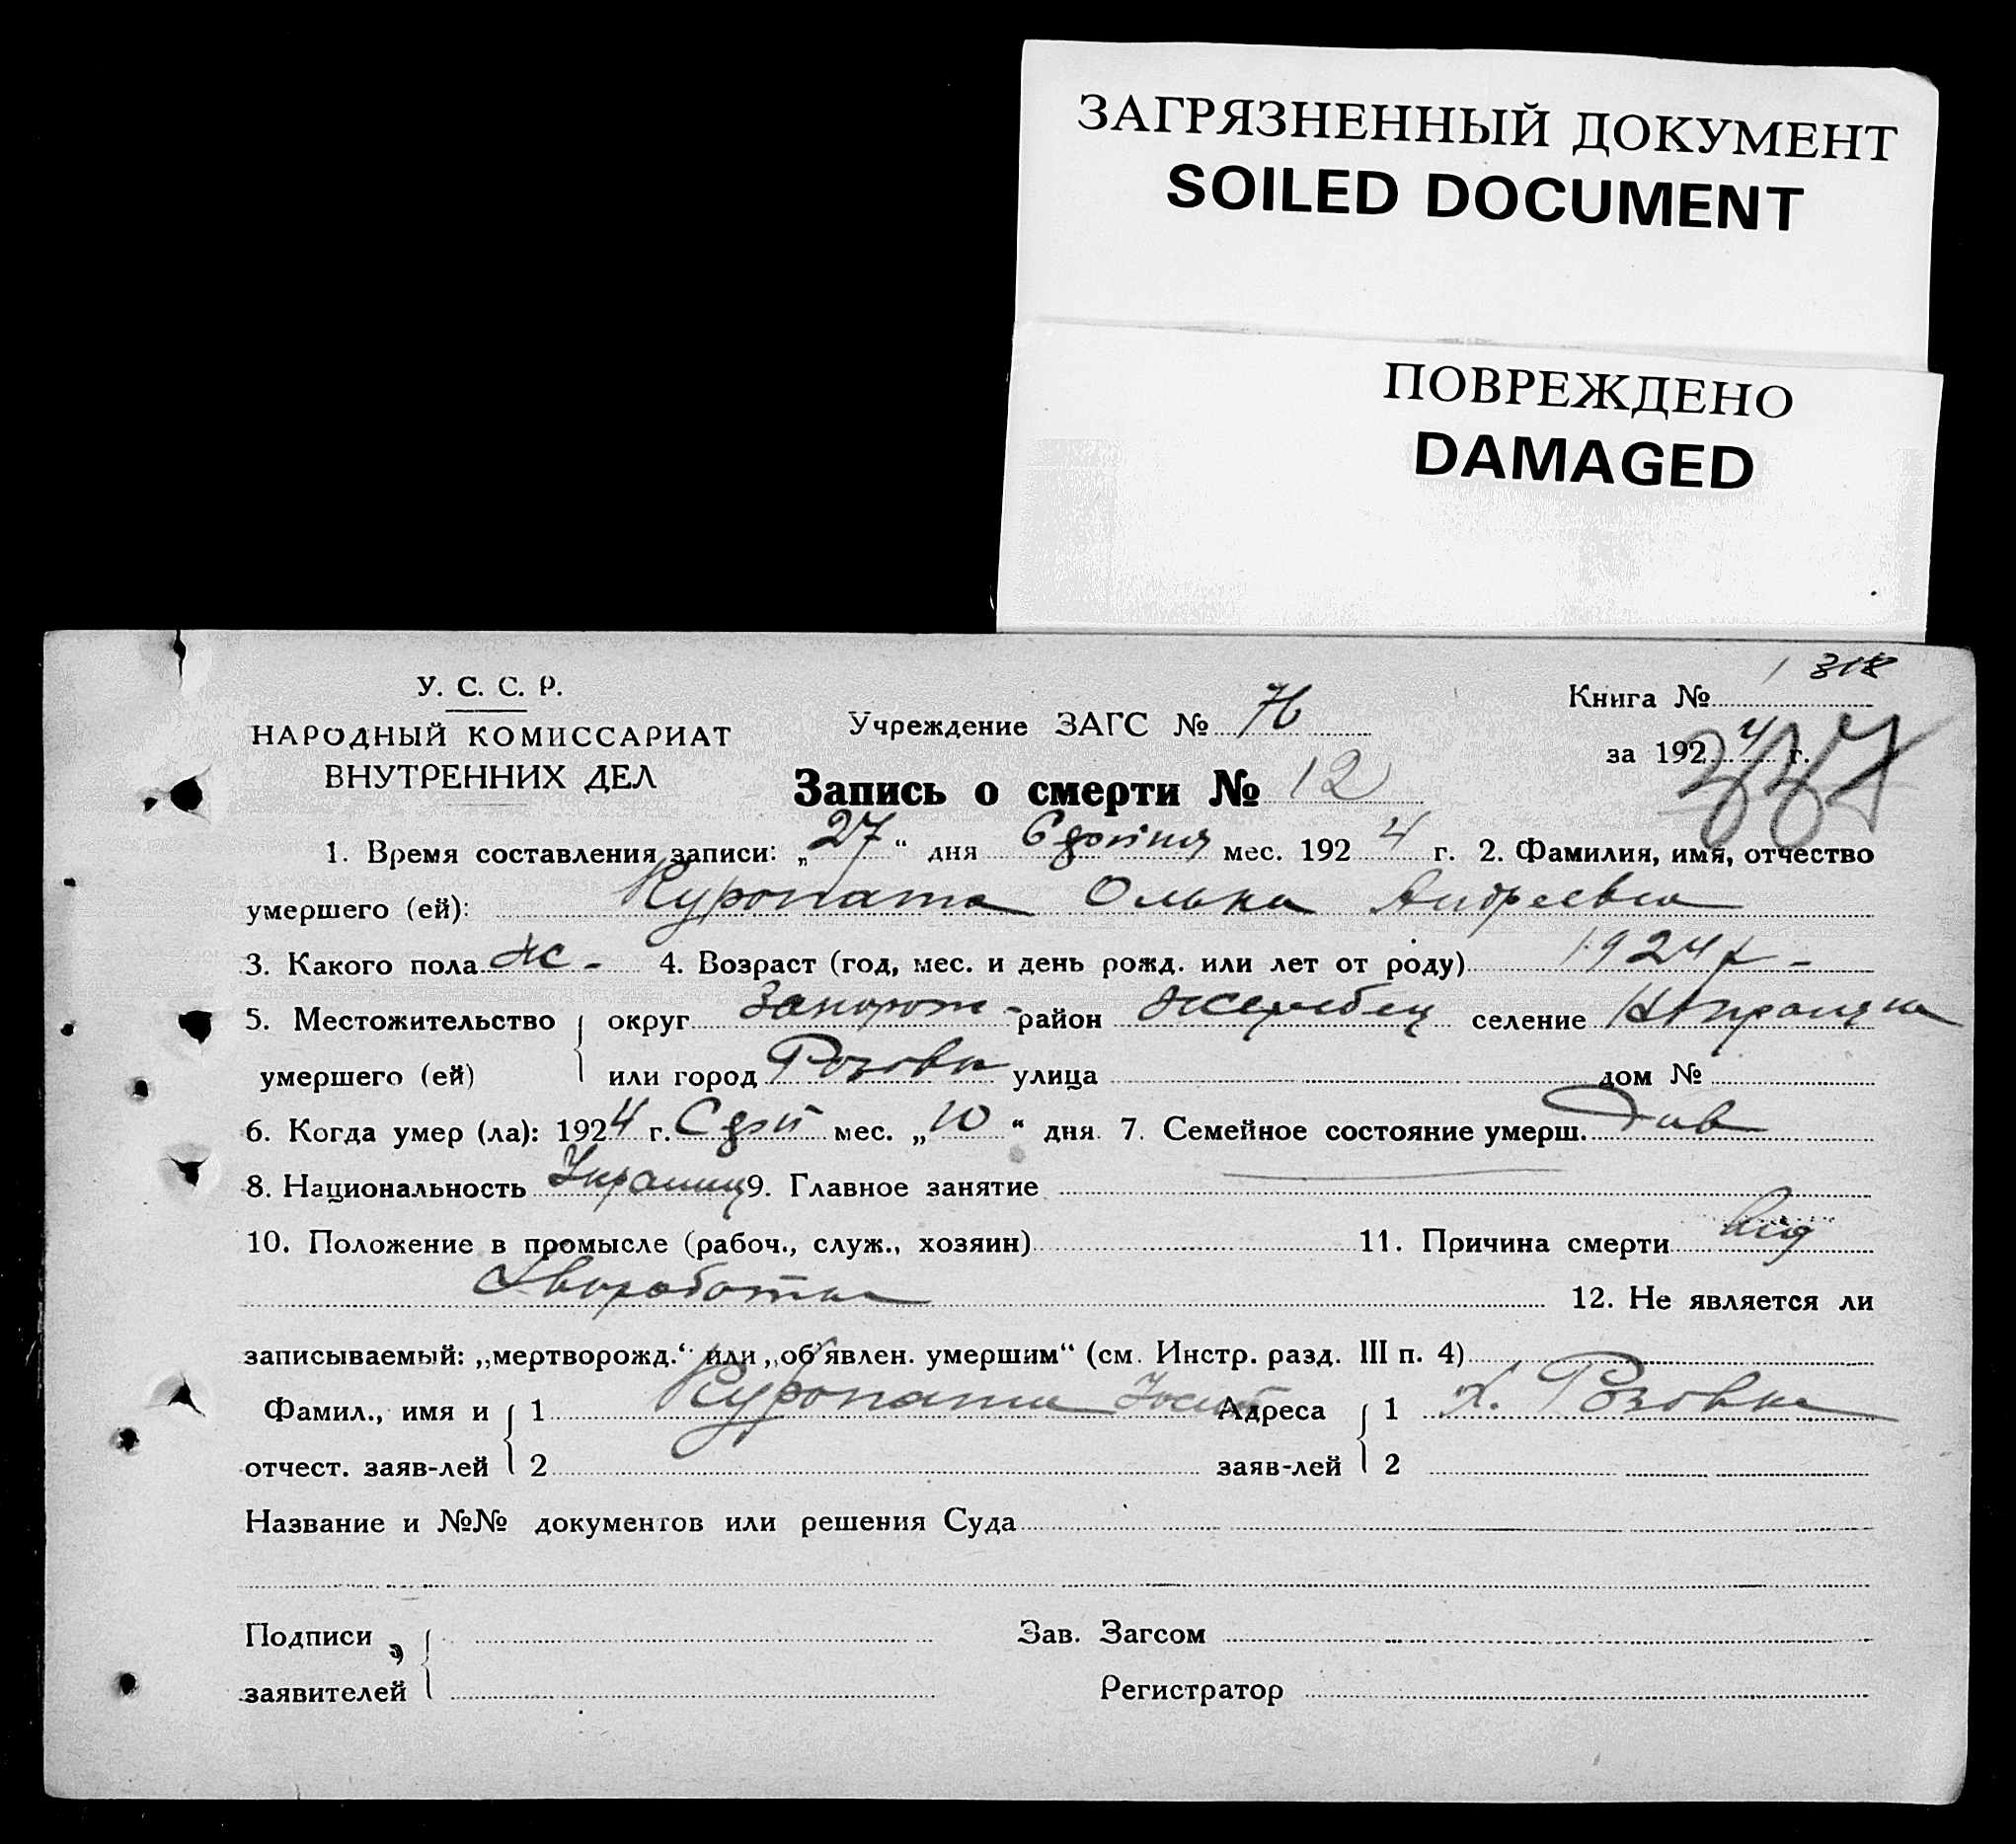 ЗАГРЯЗНЕННЫЙ ДОКУМЕНТ
SOILED DOCUMENT
ПОВРЕЖДЕНО
DAMAGED
318
У. С. С. Р.
НАРОДНЫЙ КОМИССАРИАТ
ВНУТРЕННИХ ДЕЛ
Учреждение ЗАГС №
Книга №
за 1924 г.
337
Запись о смерти № 12
1. Время составления записи: „27“ дня мес. 1924 г. 2. Фамилия, имя, отчество
умершего (ей): Куропата Олька Андреевна
3. Какого пола ж - 4. Возраст (год, мес. и день рожд. или лет от роду) 1924 г -
5. Местожительство округ Запорож - район Жеребец селение
умершего (ей) или город Розовка улица дом №
6. Когда умер (ла): 1924 г. мес. „10“ дня 7. Семейное состояние умерш.
8. Национальность Украинц 9. Главное занятие
10. Положение в промысле (рабоч., служ., хозяин) 11. Причина смерти від
12. Не является ли
записываемый: „мертворожд.“ или „об'явлен. умершим“ (см. Инстр. разд. III п. 4)
Фамил., имя и 1 Куропата Адреса 1 х. Розовка
отчест. заяв-лей 2 заяв-лей 2
Название и №№ документов или решения Суда
Подписи Зав. Загсом
заявителей Регистратор